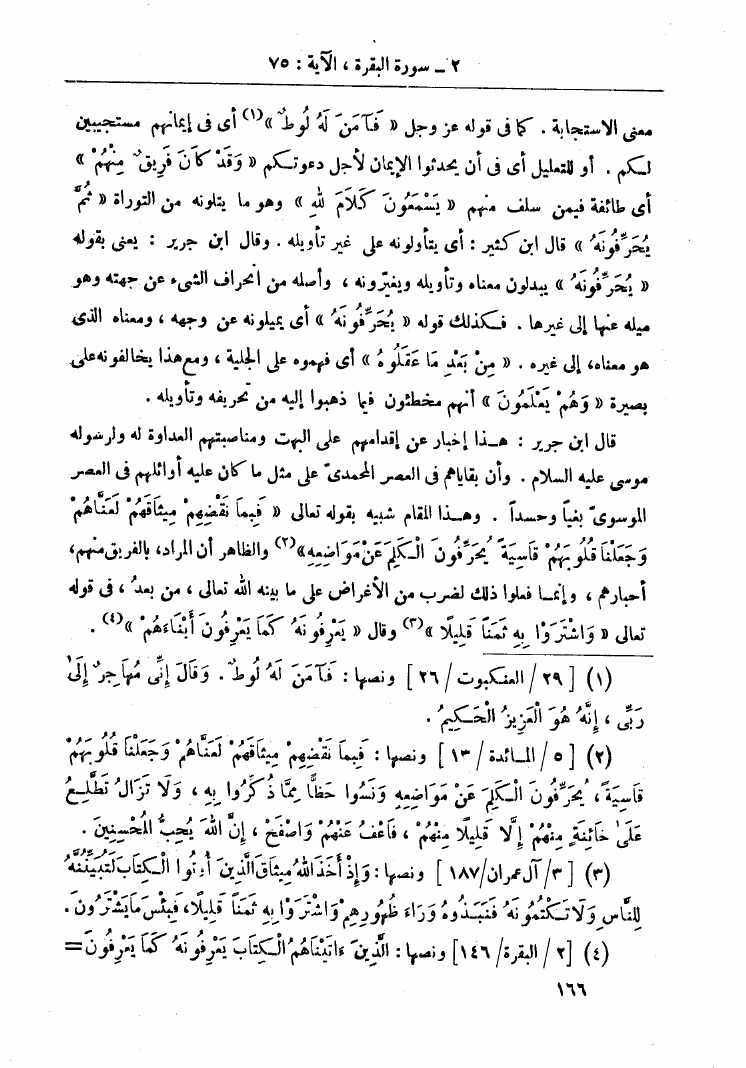 ٢ – سورة البقرة ، الآية : ٧٥
معنى الاستجابة . كما فى قوله عز وجل « فَآمَنَ لَهُ لُوطٌ »(١) أى فى إيمانهم مستجيبين
لكم . أو للتعليل أى فى أن يحدثوا الإيمان لأجل دعوتكم « وَقَدْ كَانَ فَرِيقٌ مِنْهُمْ »
أى طائفة فيمن سلف منهم « يَسْمَعُونَ كَلَامَ لله » وهو ما يتلونه من التوراة « ثُمَّ
يُحَرِّفُونَهُ » قال ابن كثير : أى يتأولونه على غير تأويله . وقال ابن جرير : يعنى بقوله
« يُحَرِّفُونَهُ » يبدلون معناه وتأويله ويغيّرونه ، وأصله من انحراف الشىء عن جهته وهو
ميله عنها إلى غيرها . فكذلك قوله « يُحَرِّفُونَهُ » أى يميلونه عن وجهه ، ومعناه الذى
هو معناه، إلى غيره . « مِنْ بَعْدِ مَا عَقَلُوهُ » أى فهموه على الجلية ، ومع هذا يخالفونه على
بصيرة « وَهُمْ يَعْلَمُونَ » أنهم مخطئون فيما ذهبوا إليه من تحريفه وتأويله .
قال ابن جرير : هـذا إخبار عن إقدامهم على البهت ومناصبتهم العداوة له ولرسوله
موسى عليه السلام . وأن بقاياهم فى العصر المحمدىّ على مثل ما كان عليه أوائلهم فى العصر
الموسوىّ بغياً وحسداً . وهـذا المقام شبيه بقوله تعالى « فَبِمَا نَقْضِهِمْ مِيثَاقَهُمْ لَعَنَّاهُمْ
وَجَعَلْنَا قُلُوبَهُمْ قَاسِيَةً يُحَرِّفُونَ الْكَلِمَ عَنْ مَوَاضِعِهِ»(٢) والظاهر أن المراد، بالفريق منهم،
أحبارهم ، وإنمـا فعلوا ذلك لضرب من الأغراض على ما بينه الله تعالى ، من بعدُ ، فى قوله
تعالى « وَاشْتَرَوْا بِهِ ثَمَنًا قَلِيلًا »(٣) وقال « يَعْرِفُونَهُ كَمَا يَعْرِفُونَ أَبْنَاءَهُمْ »(٤) .
(١) [ ٢٩ / العنكبوت / ٢٦ ] ونصها : فَآمَنَ لَهُ لُوطٌ . وَقَالَ إِنِّى مُهَاجِرٌ إِلَىٰ
رَبِّى ، إِنَّهُ هُوَ الْعَزِيزُ الْحَكِيمُ .
(٢) [ ٥ / المـائدة / ١٣ ] ونصها : فَبِمَا نَقْضِهِمْ مِيثَاقَهُمْ لَعَنَّاهُمْ وَجَعَلْنَا قُلُوبَهُمْ
قَاسِيَةً ، يُحَرِّفُونَ الْكَلِمَ عَنْ مَوَاضِعِهِ وَنَسُوا حَظًّا مِمَّا ذُكِّرُوا بِهِ ، وَلَا تَزَالُ تَطَّلِعُ
عَلَىٰ خَائِنَةٍ مِنْهُمْ إِلَّا قَلِيلًا مِنْهُمْ ، فَاعْفُ عَنْهُمْ وَاصْفَحْ ، إِنَّ اللهَ يُحِبُّ الْمُحْسِنِينَ .
(٣) [ ٣/ آل عمران/ ١٨٧ ] ونصها : وَإِذْ أَخَذَ اللهُ مِيثَاقَ الَّذِينَ أُوتُوا الْكِتَابَ لَتُبَيِّنُنَّهُ
لِلنَّاسِ وَلَا تَكْتُمُونَهُ فَنَبَذُوهُ وَرَاءَ ظُهُورِهِمْ وَاشْتَرَوْا بِهِ ثَمَنًا قَلِيلًا، فَبِئْسَ مَا يَشْتَرُونَ .
(٤) [٢ / البقرة/ ١٤٦] ونصها : الَّذِينَ ءَاتَيْنَاهُمُ الْكِتَابَ يَعْرِفُونَهُ كَمَا يَعْرِفُونَ =
١٦٦